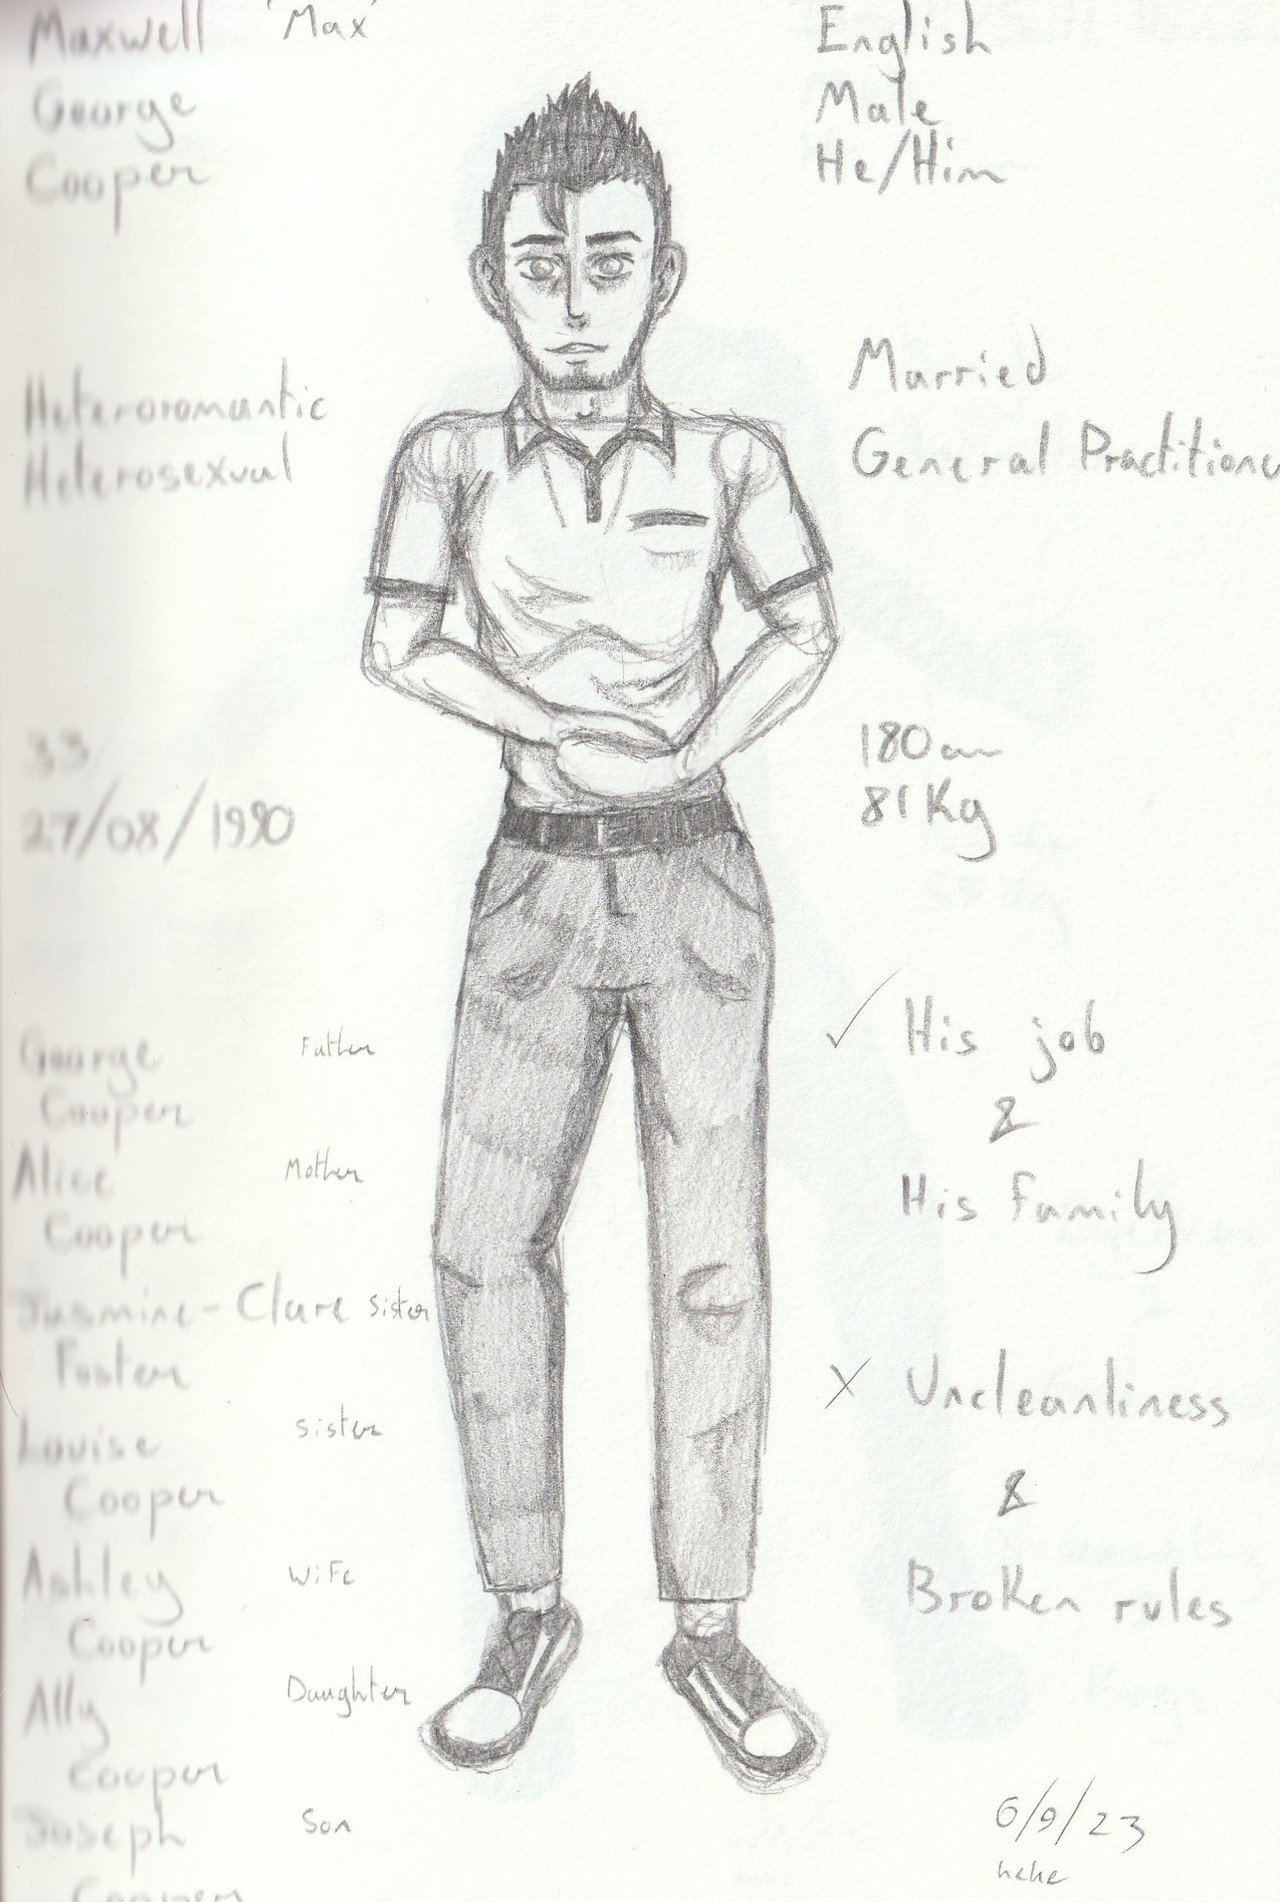 Maxwell 'Max'
George
Cooper
English
Male
He/Him
Heteroromantic
Heterosexual
Married
General Practitioner
33
27/08/1990
180cm
81Kg
George Father
Cooper
Alice Mother
Cooper
Jasmine-Clare sister
Foster
Louise sister
Cooper
Ashley Wife
Cooper
Ally Daughter
Cooper
Joseph Son
Cooper
✓ His job
&
His Family
X Uncleanliness
&
Broken rules
6/9/23
hehe